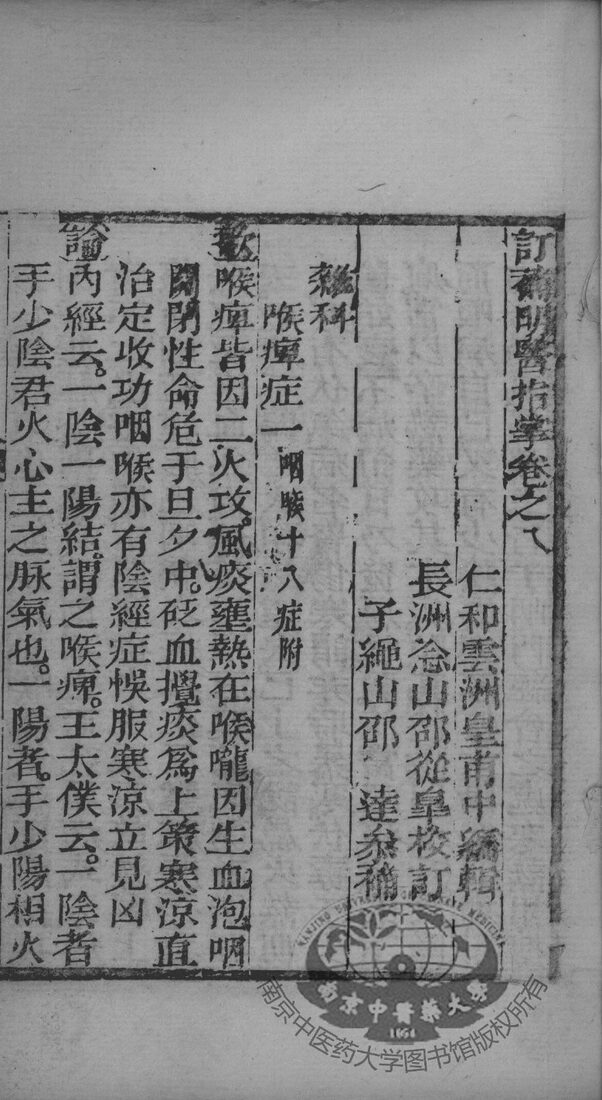 訂補明醫指掌卷之八
仁和雲洲皇甫中編輯
長洲念山邵從皇校訂
子繩山邵達參補
雜科
喉痺症一咽喉十八症附
歌喉痺皆因二火攻風痰壅熱在喉嚨因生血泡咽
關閉性命危于旦夕中砭血攪痰為上策寒涼直
治定收功咽喉亦有陰經症悞服寒涼立見凶
論內經云。一陰一陽結。謂之喉痺。王太僕云。一陰者
手少陰君火心主之脉氣也。一陽者。手少陽相火
南京中醫藥大學
1954
南京中医药大学图书馆版权所有